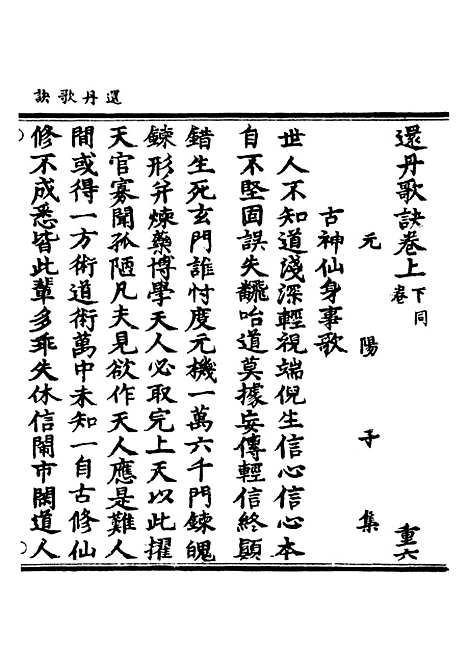 還丹歌訣
還丹歌訣卷上 下卷同 重六
元陽子集
古神仙身事歌
世人不知道淺深輕視端倪生信心信心本
自不堅固誤失飜咍道莫據妄傳輕信終顛
錯生死玄門誰忖度元機一萬六千門鍊魄
鍊形并煉藥博學天人必取完上天以此擢
天官寡聞孤陋凡夫見欲作天人應是難人
間或得一方術道術萬中未知一自古修仙
修不成悉皆此輩多乖失休信鬧市閧道人